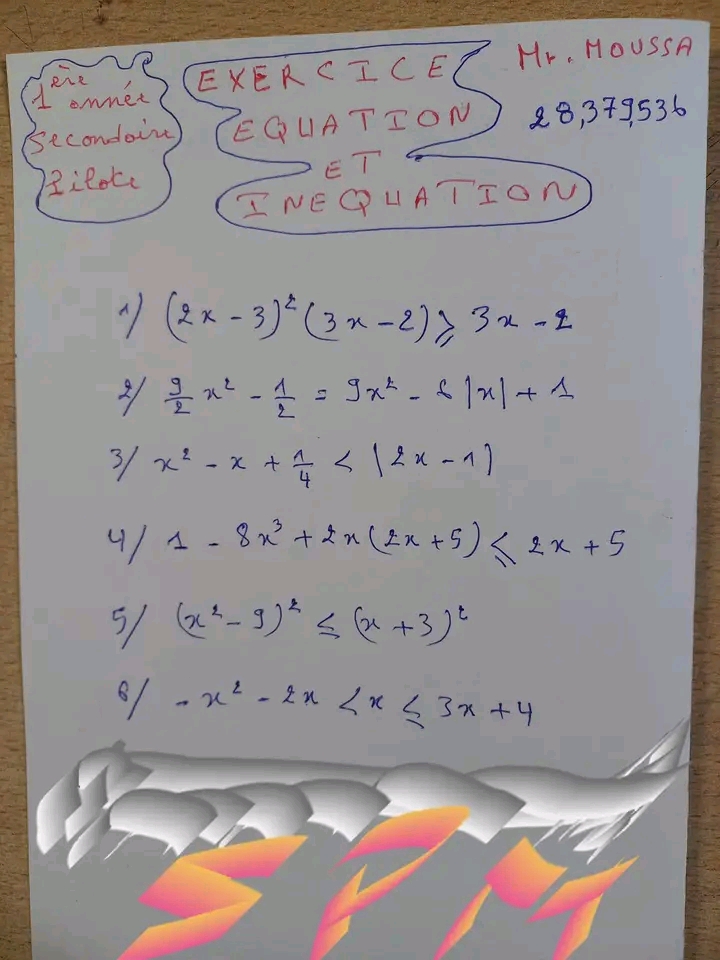 1ère
année
Secondaire
Pilote
EXERCICE
EQUATION
ET
INEQUATION
Mr. MOUSSA
28,379,536
1/ (2x - 3)² (3x - 2) ⩾ 3x - 2
2/ 9/2 x² - 1/2 = 9x² - 6 |x| + 1
3/ x² - x + 1/4 < |2x - 1|
4/ 1 - 8x³ + 2x(2x + 5) ⩽ 2x + 5
5/ (x² - 9)² ≤ (x + 3)²
6/ - x² - 2x < x ⩽ 3x + 4
SPM